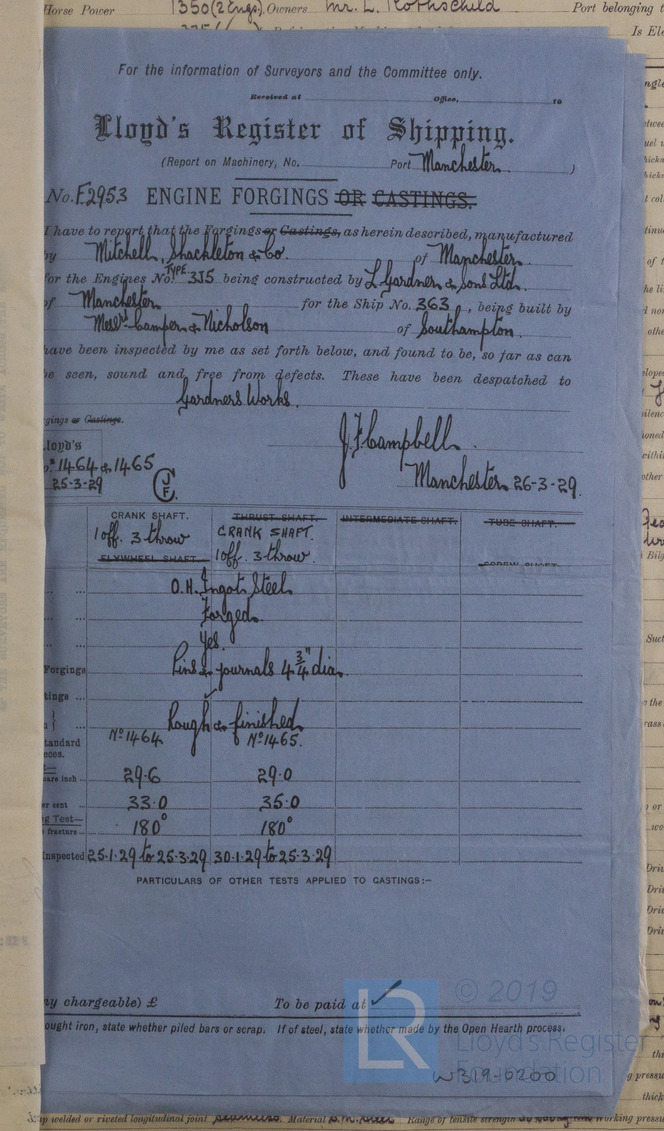 Horse Power 1350 (2 Engs). Owners Mr. L. Rothschild Port belonging t
Is Ele
For the information of Surveyors and the Committee only.
Received at Office, 19
Lloyd's Register of Shipping.
(Report on Machinery, No. Port Manchester. )
No. F2953 ENGINE FORGINGS OR CASTINGS.
I have to report that the Forgings or Castings, as herein described, manufactured
by Mitchell, Shackleton & Co. of Manchester.
for the Engines No. TYPE 3J5 being constructed by L. Gardner & Sons Ltd.
of Manchester for the Ship No. 363, being built by
Messrs Camper & Nicholson of Southampton.
have been inspected by me as set forth below, and found to be, so far as can
be seen, sound and free from defects. These have been despatched to
Gardners Works.
gings or Castings.
Lloyd's
o. 1464 & 1465
25-3-29
J.F.
J. F. Campbell.
Manchester 26-3-29.
CRANK SHAFT. THRUST SHAFT. INTERMEDIATE SHAFT. TUBE SHAFT.
1 off. 3 throw CRANK SHAFT.
FLYWHEEL SHAFT 1 off. 3 throw. SCREW SHAFT.
O.H. Ingot Steel.
Forged.
Yes.
Forgings Pins & journals 4 3/4" dia.
tings ... ✓
Rough & finished.
tandard Nº 1464 Nº 1465.
eces.
uare inch .. 29.6 29.0
er cent .. 33.0 35.0
g Test—
fracture .. 180° 180°
Inspected 25-1-29 to 25-3-29 30-1-29 to 25-3-29
PARTICULARS OF OTHER TESTS APPLIED TO CASTINGS:—
ny chargeable) £ To be paid at ✓
ought iron, state whether piled bars or scrap. If of steel, state whether made by the Open Hearth process.
LR
© 2019
Lloyd's Register
Foundation
W319-0200
p welded or riveted longitudinal joint seamless Material S.M. Steel Range of tensile strength Working pressu